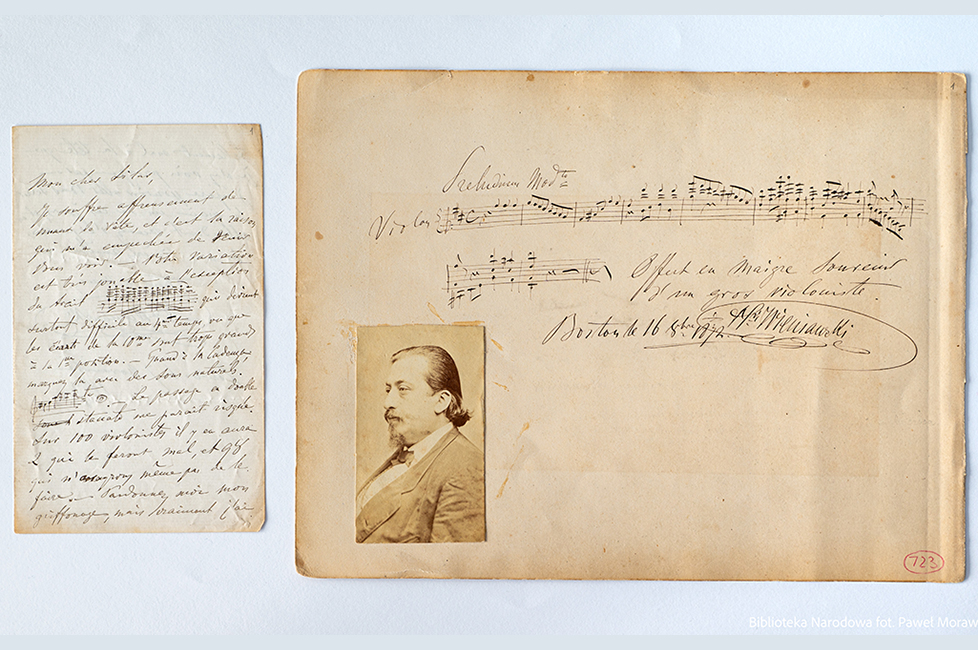 Mon cher
Je souffre affreusement de
nouveau de la tête, et c'est la raison
qui m'a empêchée de venir
vous voir. — Votre variation
est très jolie à l'exception
du trait qui devient
surtout difficile au temps vu que
les écarts de la 10me sont trop grands
à la position. — Quand à la cadence,
marquez la avec des sons naturels.
— Le passage en double
staccato me parait risqué.
Sur 100 violonistes il y en aura
2 qui le feront mal et 98
qui n' même pas de le
faire. — Pardonnez moi mon
griffonage, mais vraiment j'ai
1
1
Preludium Modto
Violon
Offert en maigre souvenir
D'un gros violoniste.
Boston le 16 8bre 1872. Wieniawski
723
Biblioteka Narodowa fot. Paweł Moraw